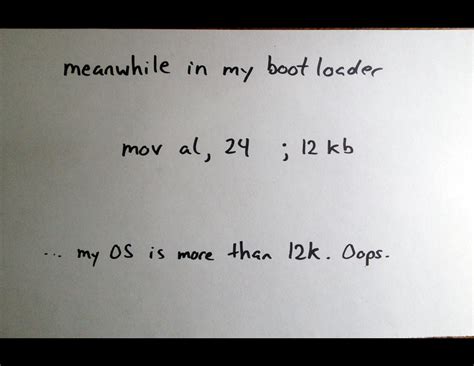 meanwhile in my bootloader
mov al, 24 ; 12 kb
... my OS is more than 12k. Oops.